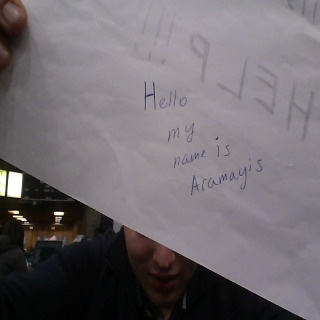 Hello
my
name is
Aramayis
HELP!!!